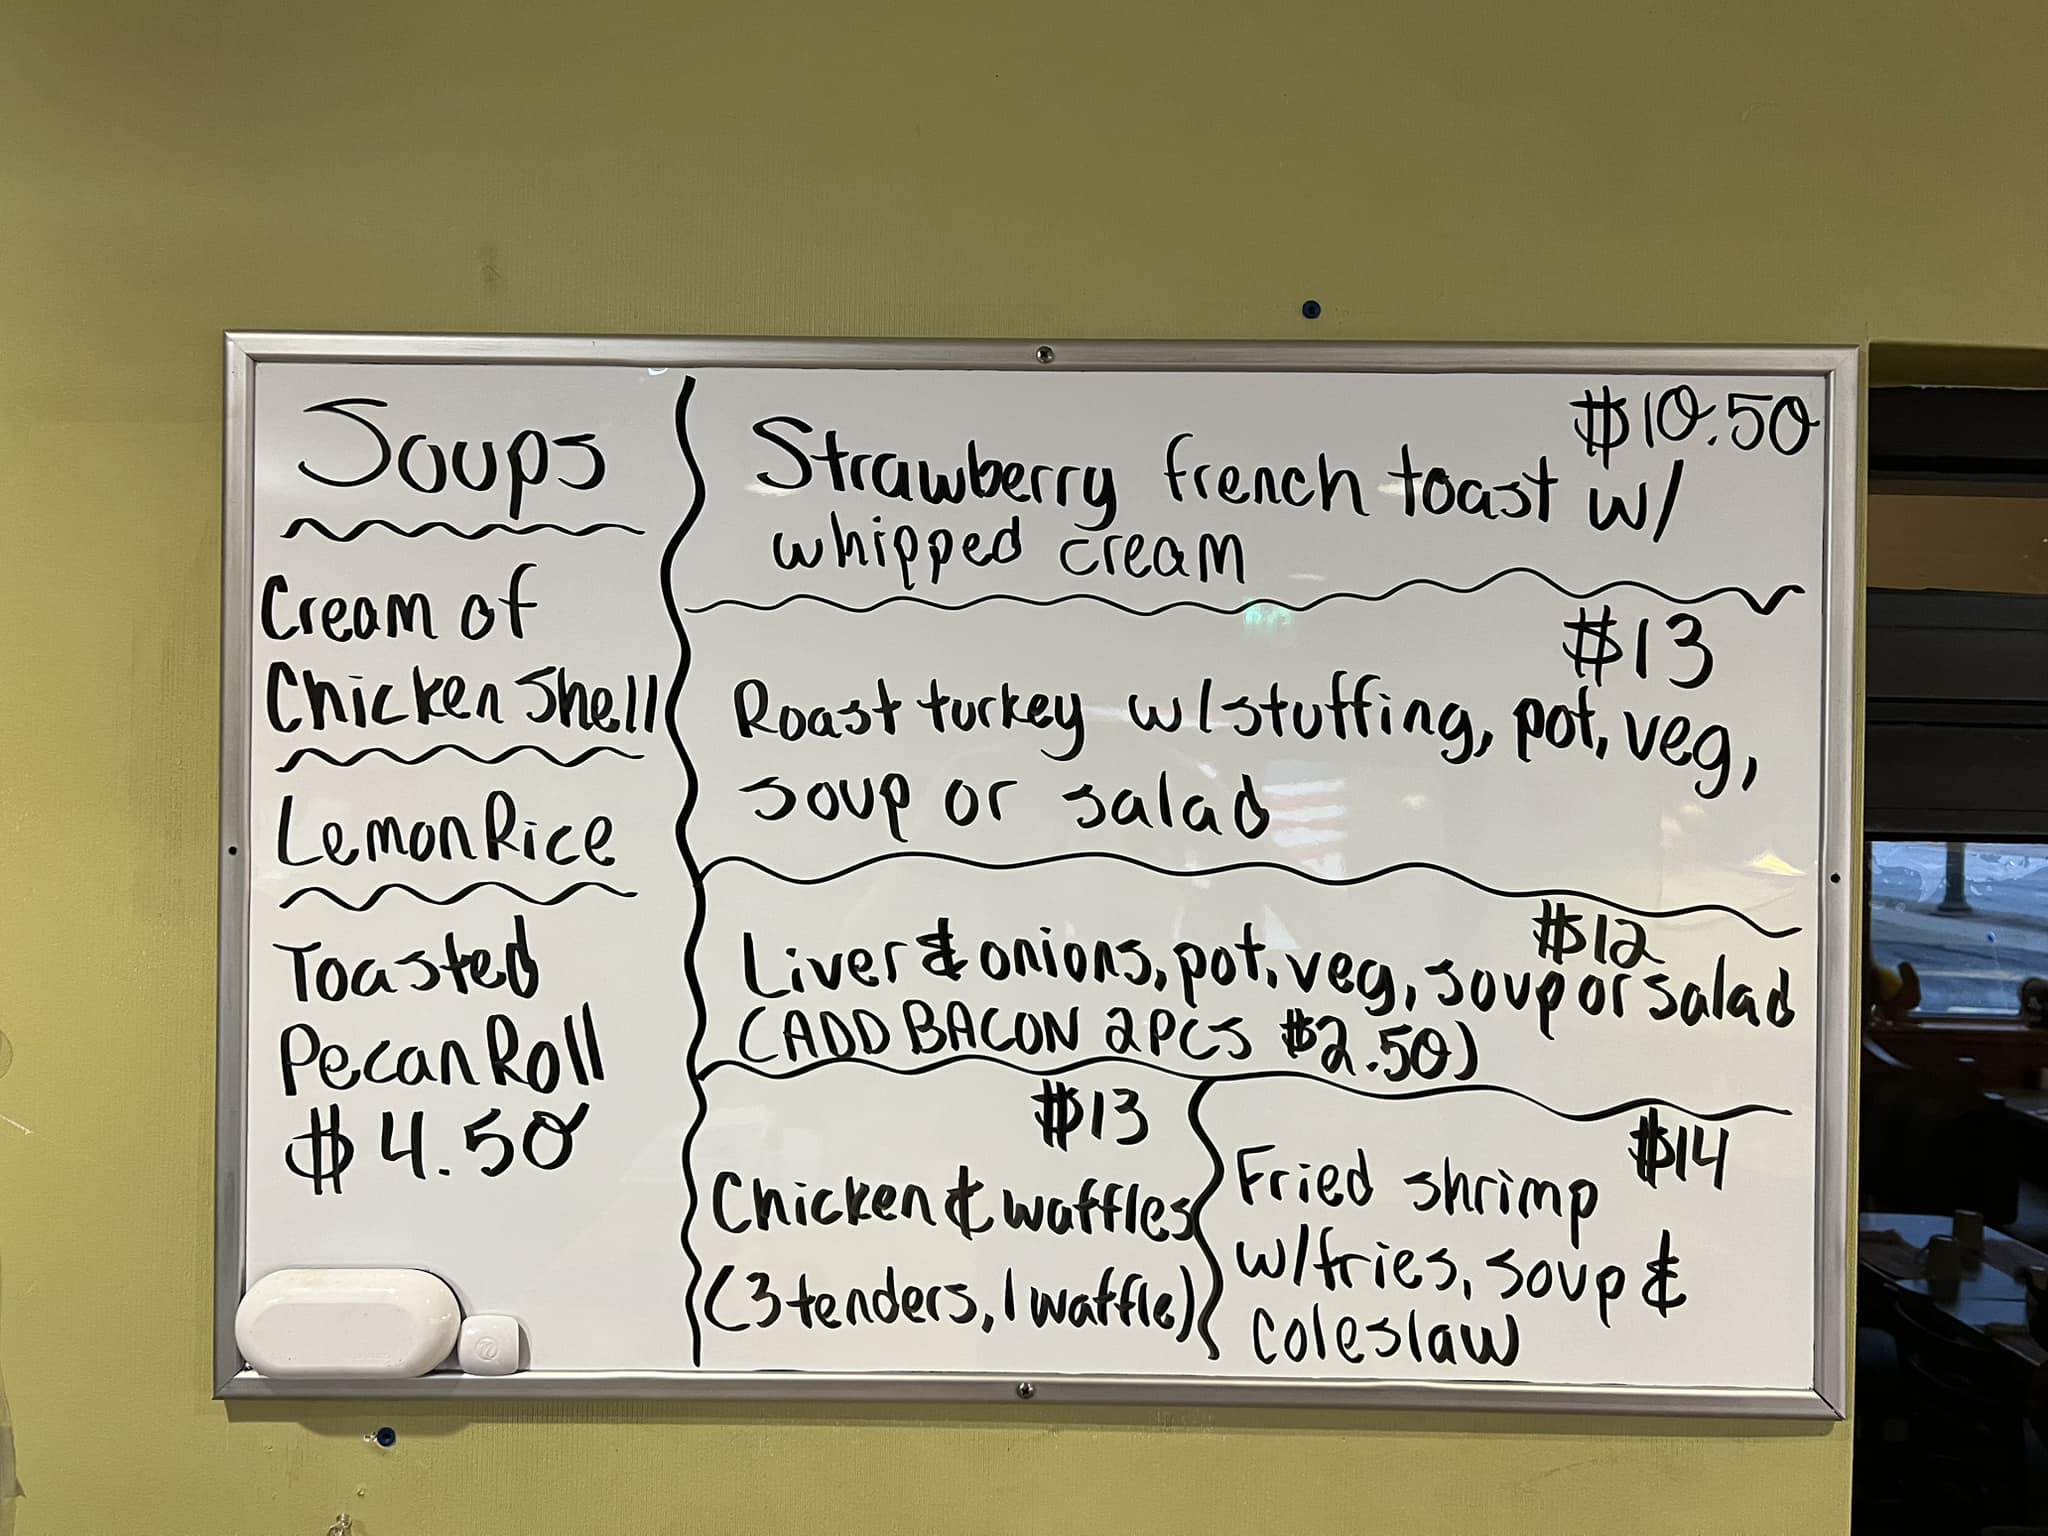 Soups
Cream of
Chicken Shell
Lemon Rice
Toasted
Pecan Roll
$4.50
$10.50
Strawberry french toast w/
whipped cream
$13
Roast turkey w/stuffing, pot, veg,
soup or salad
$12
Liver & onions, pot, veg, soup or salad
(ADD BACON 2PCS $2.50)
$13
Chicken & waffles
(3 tenders, 1 waffle)
$14
Fried shrimp
w/fries, soup &
coleslaw